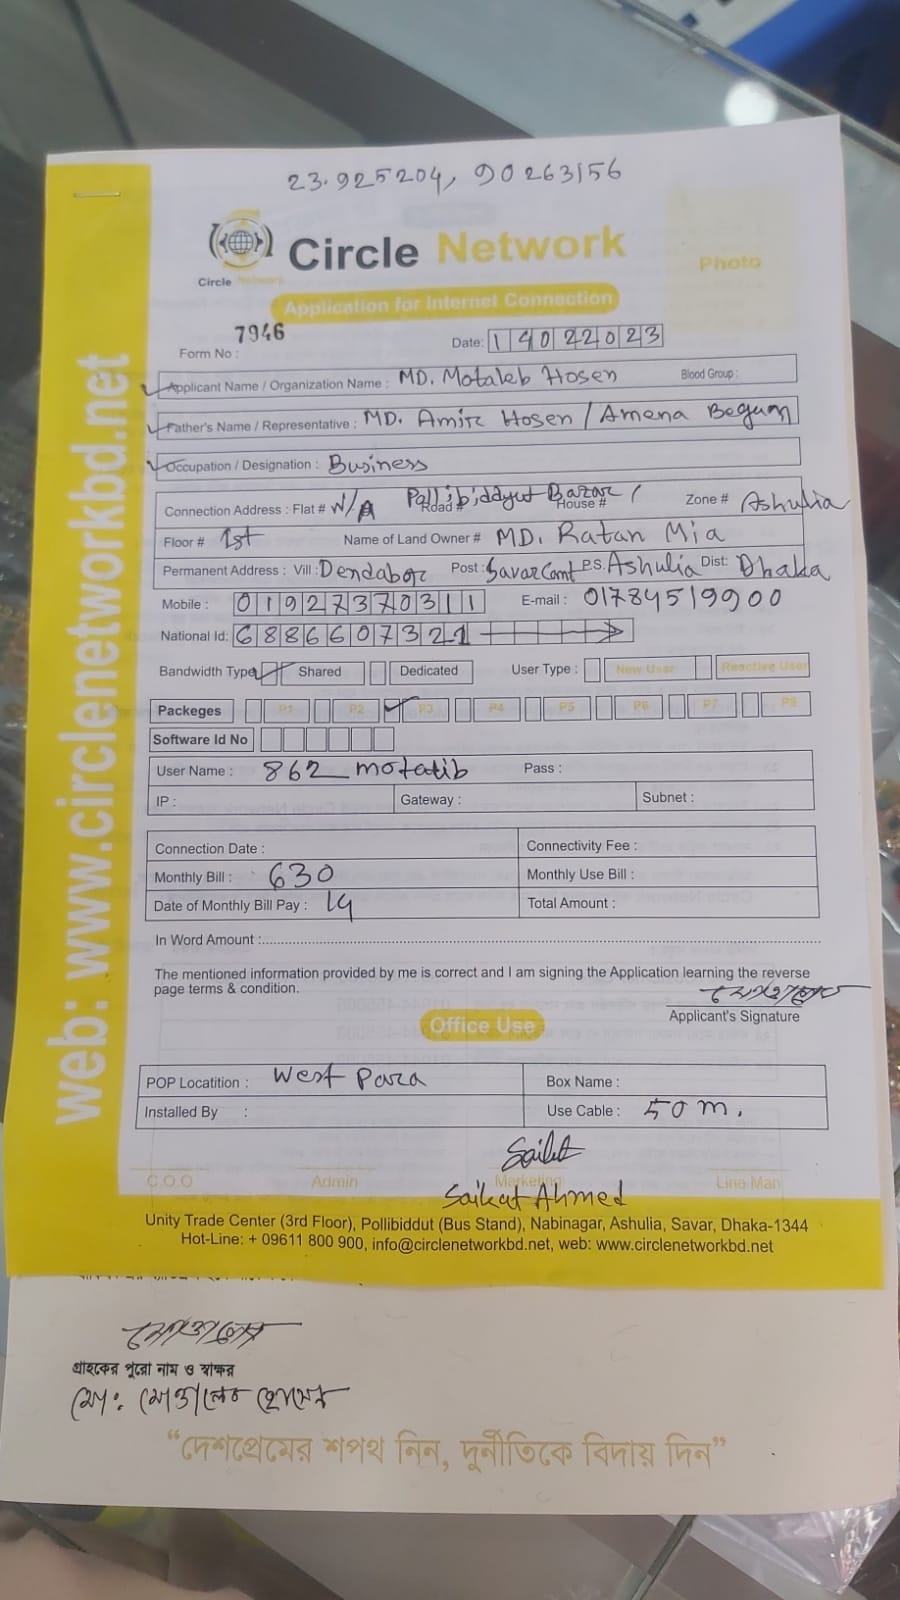 23.925204, 90263156
Circle Network
Circle Network
Photo
Application for Internet Connection
Form No : 7946
Date: 14022023
Applicant Name / Organization Name : MD. Motaleb Hosen Blood Group :
Father's Name / Representative : MD. Amir Hosen / Amena Begum
Occupation / Designation : Business
Connection Address : Flat # N/A Road # Pallibiddyut Bazar / House # Zone # Ashulia
Floor # 1st Name of Land Owner # MD. Ratan Mia
Permanent Address : Vill : Dendabor Post : Savar Cant P.S. Ashulia Dist: Dhaka
Mobile : 01927370311 E-mail : 01784519900
National Id: 6886607321
Bandwidth Type Shared Dedicated User Type : New User Reactive User
Packeges P1 P2 P3 P4 P5 P6 P7 P8
Software Id No
User Name : 862_motalib Pass :
IP : Gateway : Subnet :
Connection Date : Connectivity Fee :
Monthly Bill : 630 Monthly Use Bill :
Date of Monthly Bill Pay : 14 Total Amount :
In Word Amount :
The mentioned information provided by me is correct and I am signing the Application learning the reverse
page terms & condition.
মোতালেব
Applicant's Signature
Office Use
POP Locatition : West Para Box Name :
Installed By : Use Cable : 50 m.
Saikat
C.O.O Admin Marketing Line Man
Saikat Ahmed
Unity Trade Center (3rd Floor), Pollibiddut (Bus Stand), Nabinagar, Ashulia, Savar, Dhaka-1344
Hot-Line: + 09611 800 900, info@circlenetworkbd.net, web: www.circlenetworkbd.net
web: www.circlenetworkbd.net
মোতালেব
গ্রাহকের পুরো নাম ও স্বাক্ষর
মো: মোতালেব হোসেন
“দেশপ্রেমের শপথ নিন, দুর্নীতিকে বিদায় দিন”